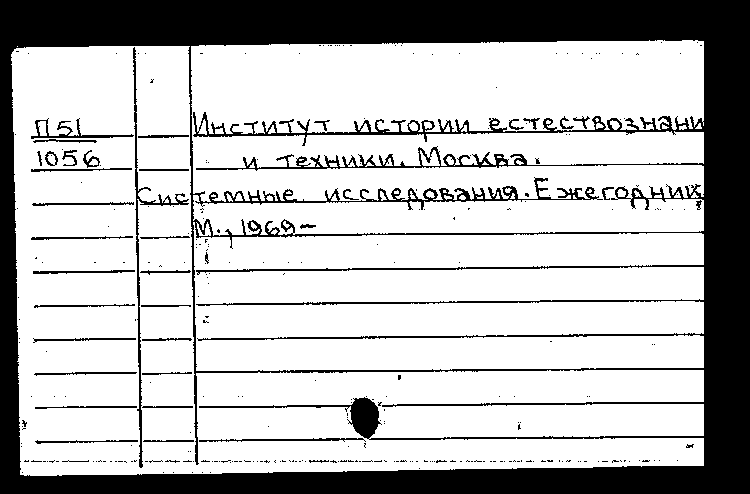 П51 Институт истории естествознани
1056 и техники. Москва.
Системные исследования. Ежегодник.
М., 1969–